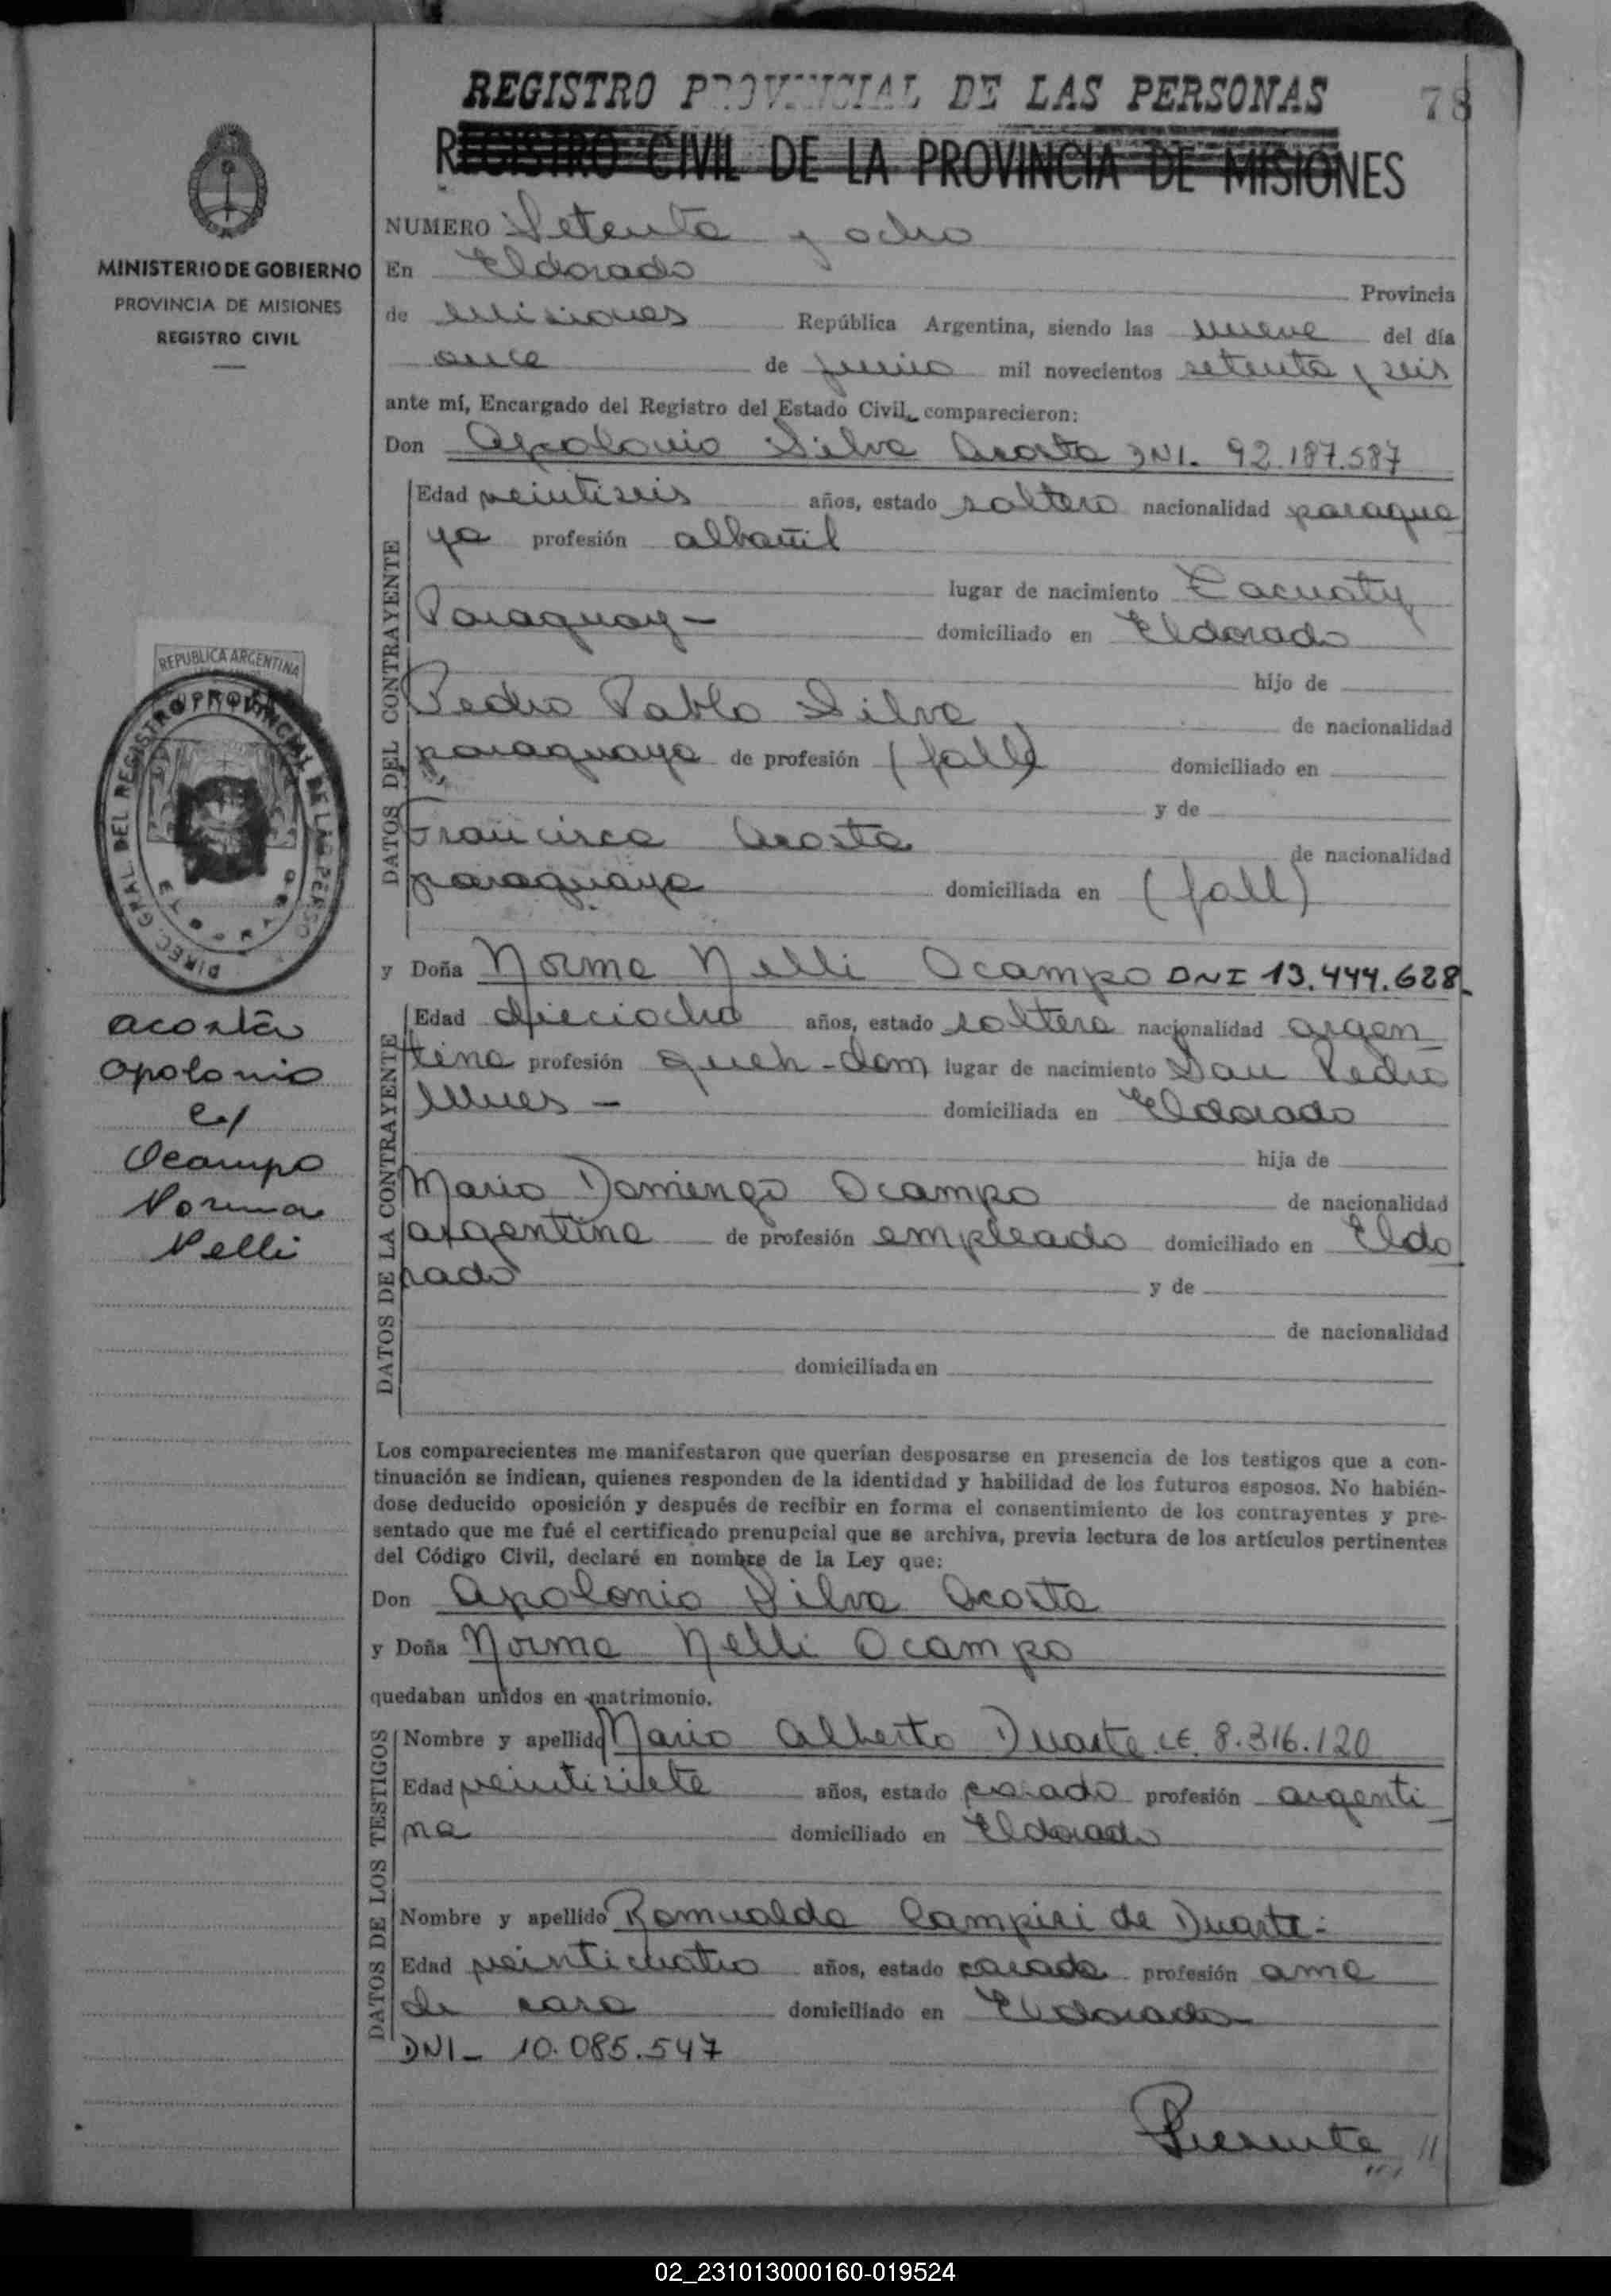 REGISTRO PROVINCIAL DE LAS PERSONAS 78
REGISTRO CIVIL DE LA PROVINCIA DE MISIONES
MINISTERIO DE GOBIERNO
PROVINCIA DE MISIONES
REGISTRO CIVIL
NUMERO Setenta y ocho
En Eldorado Provincia
de Misiones República Argentina, siendo las nueve del día
once de junio mil novecientos setenta y seis
ante mí, Encargado del Registro del Estado Civil, comparecieron:
Don Apolonio Silva Acosta DNI. 92.187.587
DATOS DEL CONTRAYENTE
Edad veintiseis años, estado soltero nacionalidad paragua
ya profesión albañil
lugar de nacimiento Tacuaty
Paraguay - domiciliado en Eldorado
hijo de
Pedro Pablo Silva de nacionalidad
paraguaya de profesión (fall) domiciliado en
y de
Francisca Acosta de nacionalidad
paraguaya domiciliada en (fall)
y Doña Norma Nelli Ocampo DNI 13.444.628
DATOS DE LA CONTRAYENTE
Edad dieciocho años, estado soltera nacionalidad argen
tina profesión queh-dom lugar de nacimiento San Pedro
Mnes - domiciliada en Eldorado
hija de
Mario Domingo Ocampo de nacionalidad
argentina de profesión empleado domiciliado en Eldo
rado y de
de nacionalidad
domiciliada en
REPUBLICA ARGENTINA
DIREC. GRAL. DEL REGISTRO PROVINCIAL DE LAS PERSO
acosta
apolonio
c/
Ocampo
Norma
Nelli
Los comparecientes me manifestaron que querían desposarse en presencia de los testigos que a con-
tinuación se indican, quienes responden de la identidad y habilidad de los futuros esposos. No habién-
dose deducido oposición y después de recibir en forma el consentimiento de los contrayentes y pre-
sentado que me fué el certificado prenupcial que se archiva, previa lectura de los artículos pertinentes
del Código Civil, declaré en nombre de la Ley que:
Don Apolonio Silva Acosta
y Doña Norma Nelli Ocampo
quedaban unidos en matrimonio.
DATOS DE LOS TESTIGOS
Nombre y apellido Mario Alberto Duarte LE. 8.316.120
Edad veintisiete años, estado casado profesión argenti
na domiciliado en Eldorado
Nombre y apellido Romualda Campiri de Duarte -
Edad veinticuatro años, estado casada profesión ama
de casa domiciliado en Eldorado
DNI - 10.085.547
Presente //
02_231013000160-019524